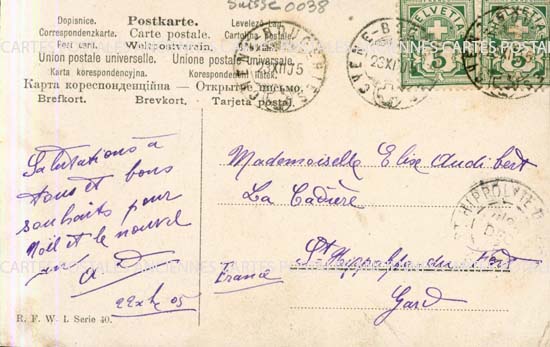 Suisse 0038
Dopisnice. Postkarte. Levelező Lap.
Correspondenzkarte. Carte postale. Cartolina Postale.
Post card. Weltpostverein.
Union postale universelle. Unione postale universale.
Karta korespondencyjna. Korespondenční lístek.
Карта корреспонденційна — Открытое письмо.
Brefkort. Brevkort. Tarjeta postal.
HELVETIA
HELVETIA
5
5
Salutations à
tous et bons
souhaits pour
Noël et le nouvel
an
22 05
Mademoiselle Elise Audibert
La Cadière
St Hippolyte du Fort
France
Gard
ST HIPPOLYTE D
R. F. W. I. Serie 40.
CARTES POSTALES ANCIENNES